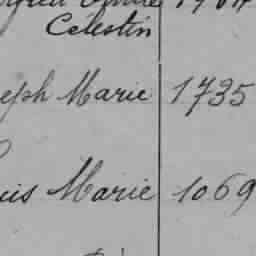 Celestin
eph Marie 1735
uis Marie 1069